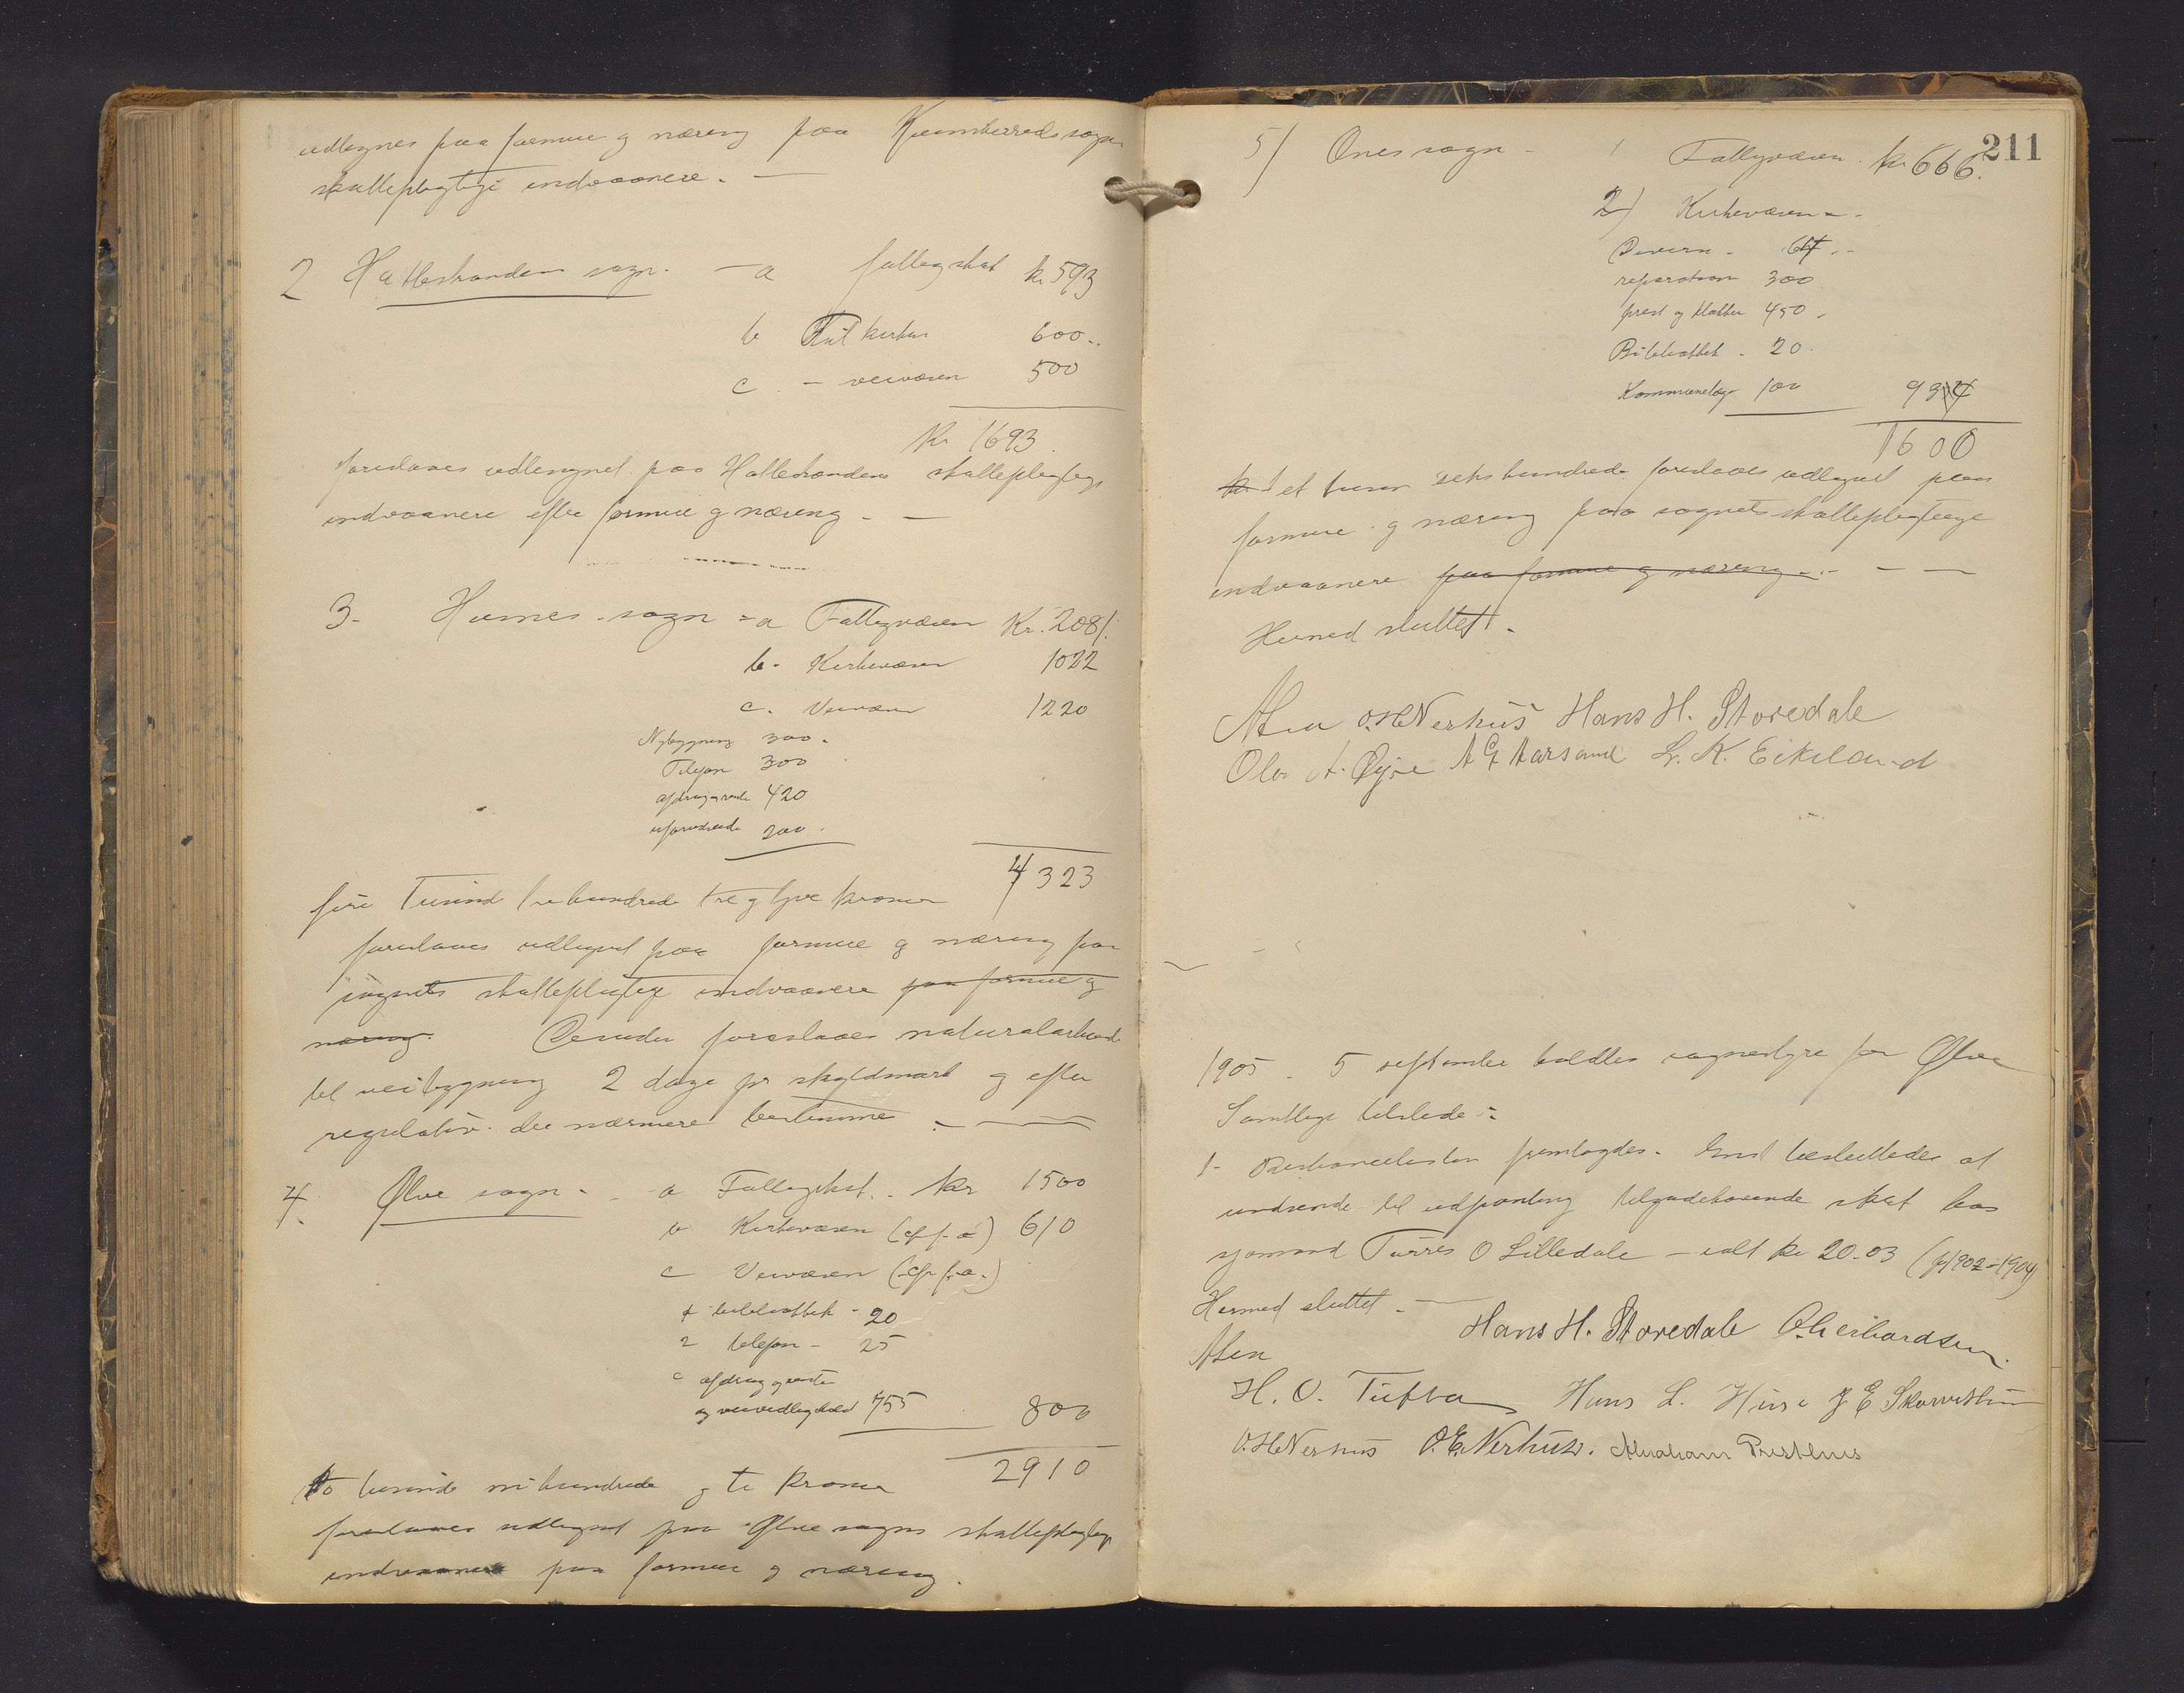 udlegnes paa formue g næring paa Kvinnherreds sogns
skattepligtige indvaanere. —
2 Hatlestrandens sogn. — a fattigskat kr 593
b Til kirken 600..
c. — veivæsen 500
Kr 1693.
foreslaaes udlignet paa Hatlestrandens skattepligtige
indvaanere efter formue g næring. —
3. Husnes sogn - a Fattigvæsen Kr. 2081.
b. Kirkevæsen 1022
c. Veivæsen 1220
Nybygning 300.
Telefon 300
afdrag g rente 420
uforudseede 200.
4323
fire Tusind trehundrede tre g tyve kroner
foreslaaes udlignet paa formue g næring paa
sognets skattepligtige indvaanere paa formue g
næring. Desuden foreslaaes naturalarbeide
til veibygning 2 dage pr skyldmark g efter
regulativ der nærmere bestemme. —
4. Ølve sogn - a Fattigskat.. kr 1500
b Kirkevæsen (cfr f. a) 610
c Veivæsen (cfr f. a.)
bibliothek - 20
2 telefon - 25
c afdrag g rente
og veivedligehold 755 800
2910
to tusinde nihundrede g ti kroner
foreslaaes udlignet paa Ølve sogns skattepligtige
indvaanere paa formue g næring.
211
5) Ænes sogn - 1 Fattigvæsen kr 666.
2) Kirkevæsen -
Diverse - 64 . -
reparation 300
prest g klokker 450.
Bibliothek - 20.
Kommunelæge 100 934
1600
kr et tusen seks hundrede foreslaaes udlignet paa
formue g næring paa sognets skattepligtige
indvaanere paa formue g næring. — —
Hermed sluttet.
Aken O.H Nerhus Hans H. Storedale
Ola A. Øyre A G Aarsand L. K. Eikeland
1905. 5 september holdtes sognestyre for Ølve
Samtlige tilstede.
1- Restanselisten fremlagdes. Enst besluttedes at
undsende til udpanting tilgodehavende skat hos
sjømand Tørres O Lilledale — ialt kr 20.03 (for 1902-1904)
Hermed sluttet. — Hans H. Storedale O. Gerhardsen.
Aken
H. O. Tufta Hans L. Huse J E Skarvatun
O.H Nerhus O.E. Nerhus. Abraham Presthus